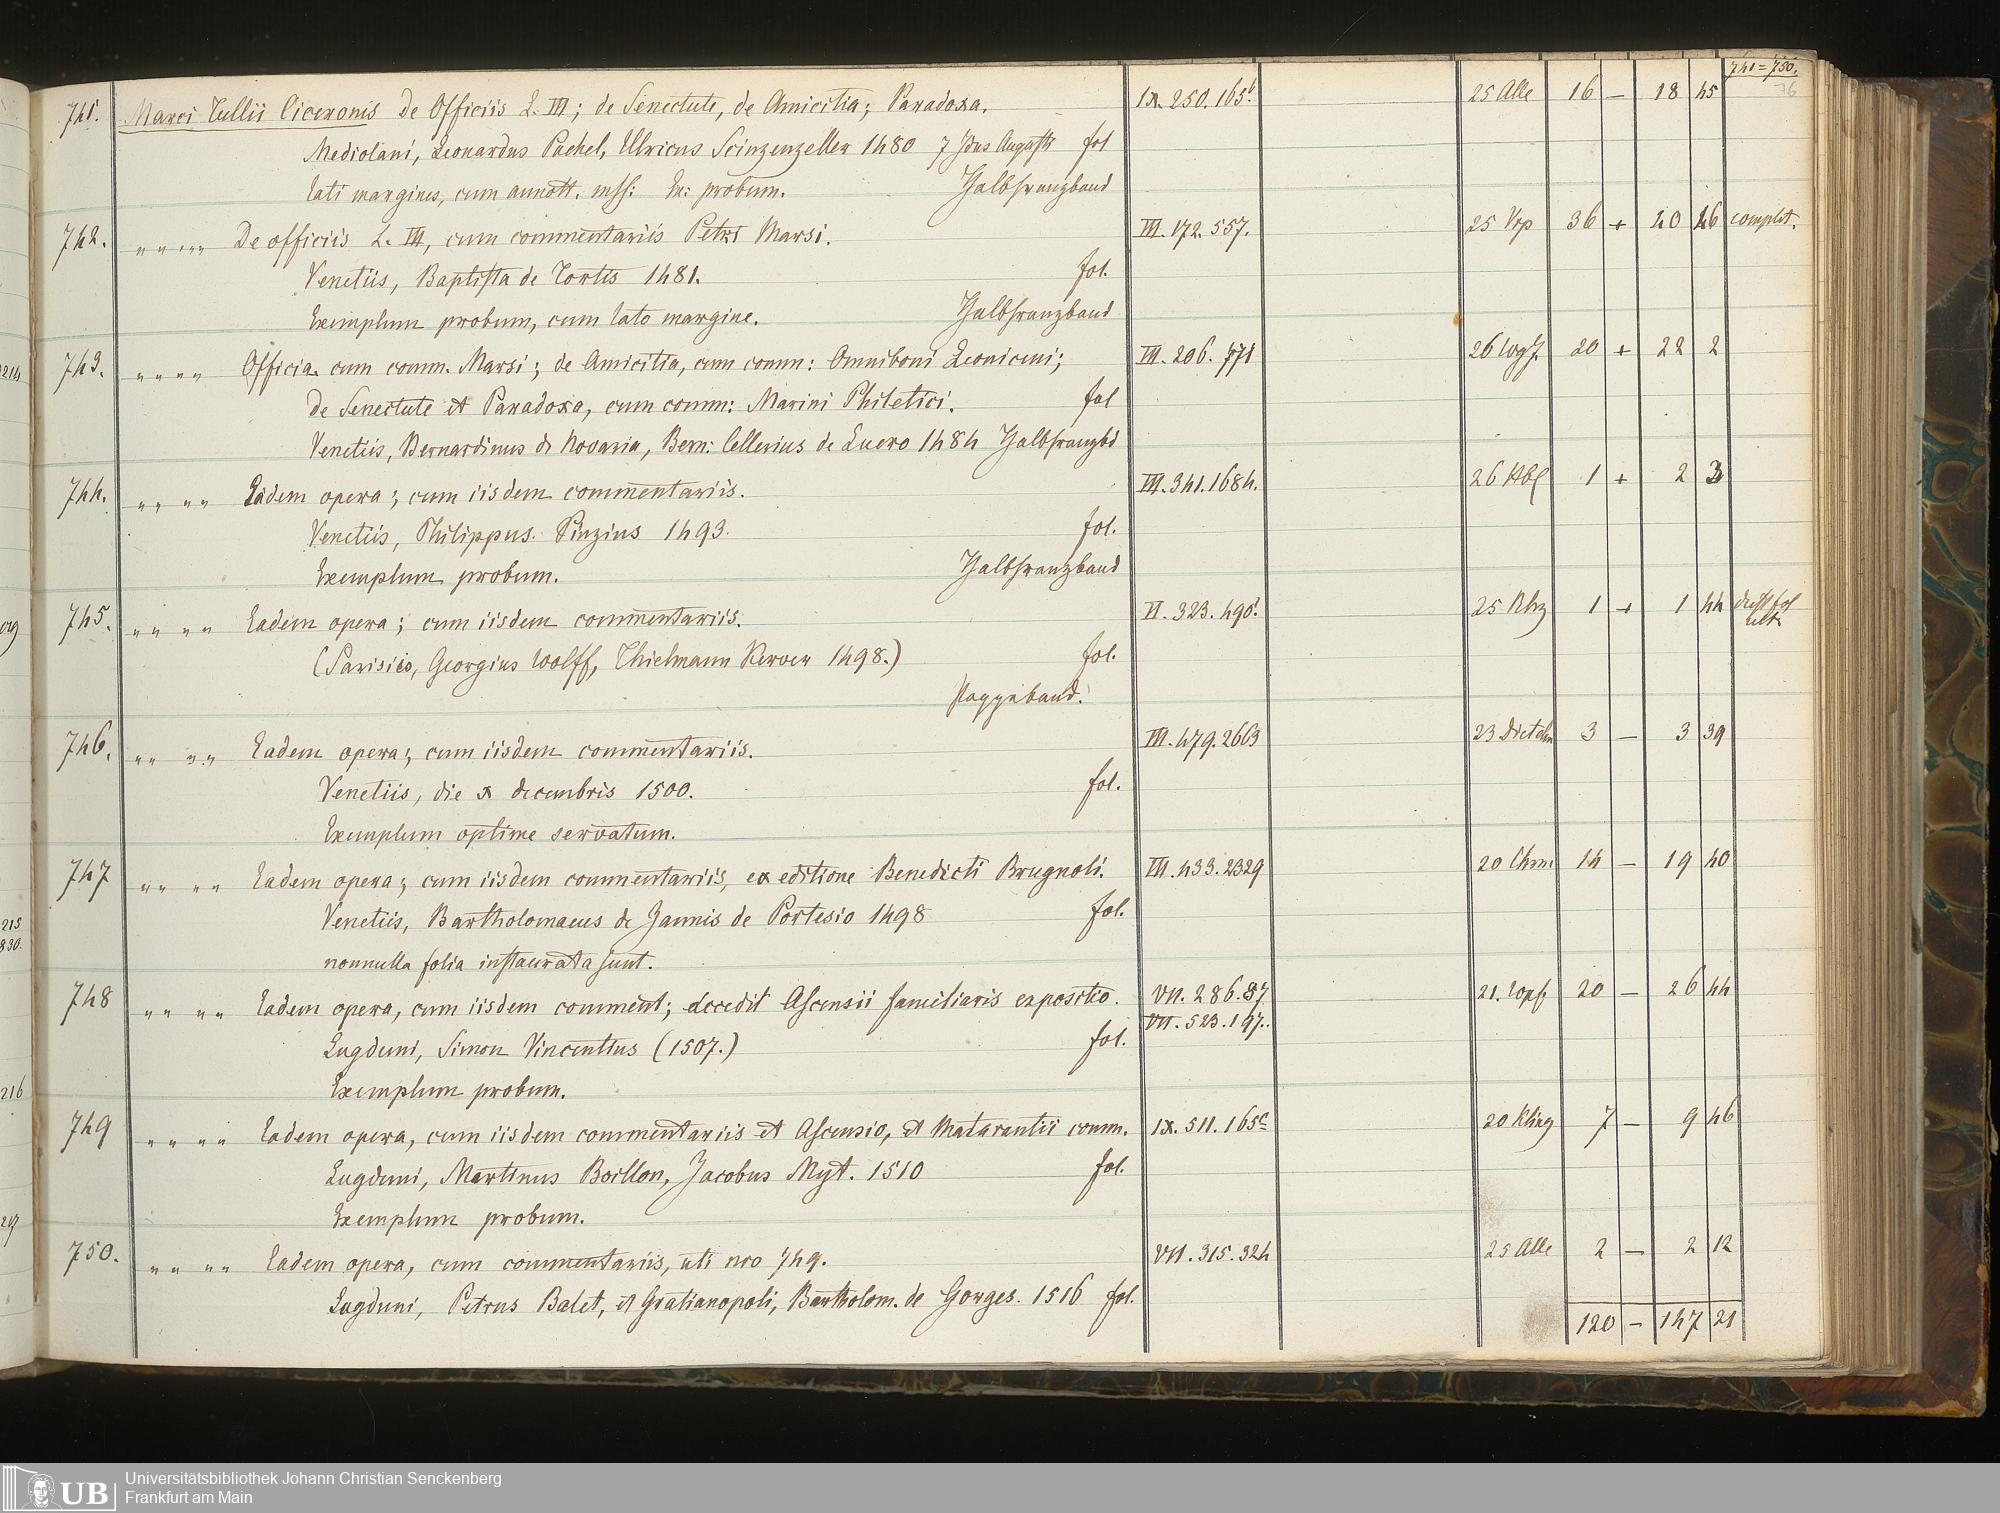 741=750.
76
741. Marci Tullii Ciceronis De Officiis L. III; de Senectute, de Amicitia; Paradoxa. IX. 250. 165b 25 Alle 16 — 18 45
Mediolani, Leonardus Pachel, Ulricus Scinzenzeller 1480 7 Idus Augusti fol
lati margines, cum annott. mss: Ex: probum. Halbfranzband
742. " " " " De officiis L. III, cum commentariis Petri Marsi. III. 172. 557. 25 36 + 40 26 complet.
Venetiis, Baptista de Tortis 1481. fol.
Exemplum probum, cum lato margine. Halbfranzband
743. " " " " Officia cum comm. Marsi; de Amicitia, cum comm: Omniboni Leoniceni; III. 206. 771 26 20 + 22 2
de Senectute et Paradoxa, cum comm: Marini Philetici. fol
Venetiis, Bernardinus de Novaria, Bern: Cellerius de Luero 1484 Halbfranzbd
744. " " " " Eadem opera; cum iisdem commentariis. III. 341. 1684. 26 1 + 2 3
Venetiis, Philippus Pinzius 1493. fol.
Exemplum probum. Halbfranzband
745. " " " " Eadem opera; cum iisdem commentariis. VI. 323. 490b. 25 1 + 1 44
(Parisiis, Georgius Wolff, Thielmann Kerver 1498.) fol.
Pappeband.
746. " " " " Eadem opera; cum iisdem commentariis. III. 479. 2663 23 3 — 3 39
Venetiis, die x decembris 1500. fol.
Exemplum optime servatum.
747 " " " " Eadem opera; cum iisdem commentariis, ex editione Benedicti Brugnoli. III. 433. 2329 20 14 — 19 40
Venetiis, Bartholomaeus de Zannis de Portesio 1498 fol.
nonnulla folia instaurata sunt.
748 " " " " Eadem opera, cum iisdem comment; accedit Ascensii familiaris expositio. VII. 286. 87 21. 20 — 26 44
VII. 523. 197.
Lugduni, Simon Vincentius (1507.) fol.
Exemplum probum.
749 " " " " Eadem opera, cum iisdem commentariis et Ascensio, et Matarantii comm. IX. 511. 165c 20 Kling 7 — 9 46
Lugduni, Martinus Boillon, Jacobus Myt. 1510 fol.
Exemplum probum.
750. " " " " Eadem opera, cum commentariis, uti nro 749. VII. 315. 324 25 Alle 2 — 2 12
Lugduni, Petrus Balet, et Gratianopoli, Bartholom. de Gorges. 1516 fol.
120 — 147 21
214
215
830.
216
217
UB Universitätsbibliothek Johann Christian Senckenberg
Frankfurt am Main